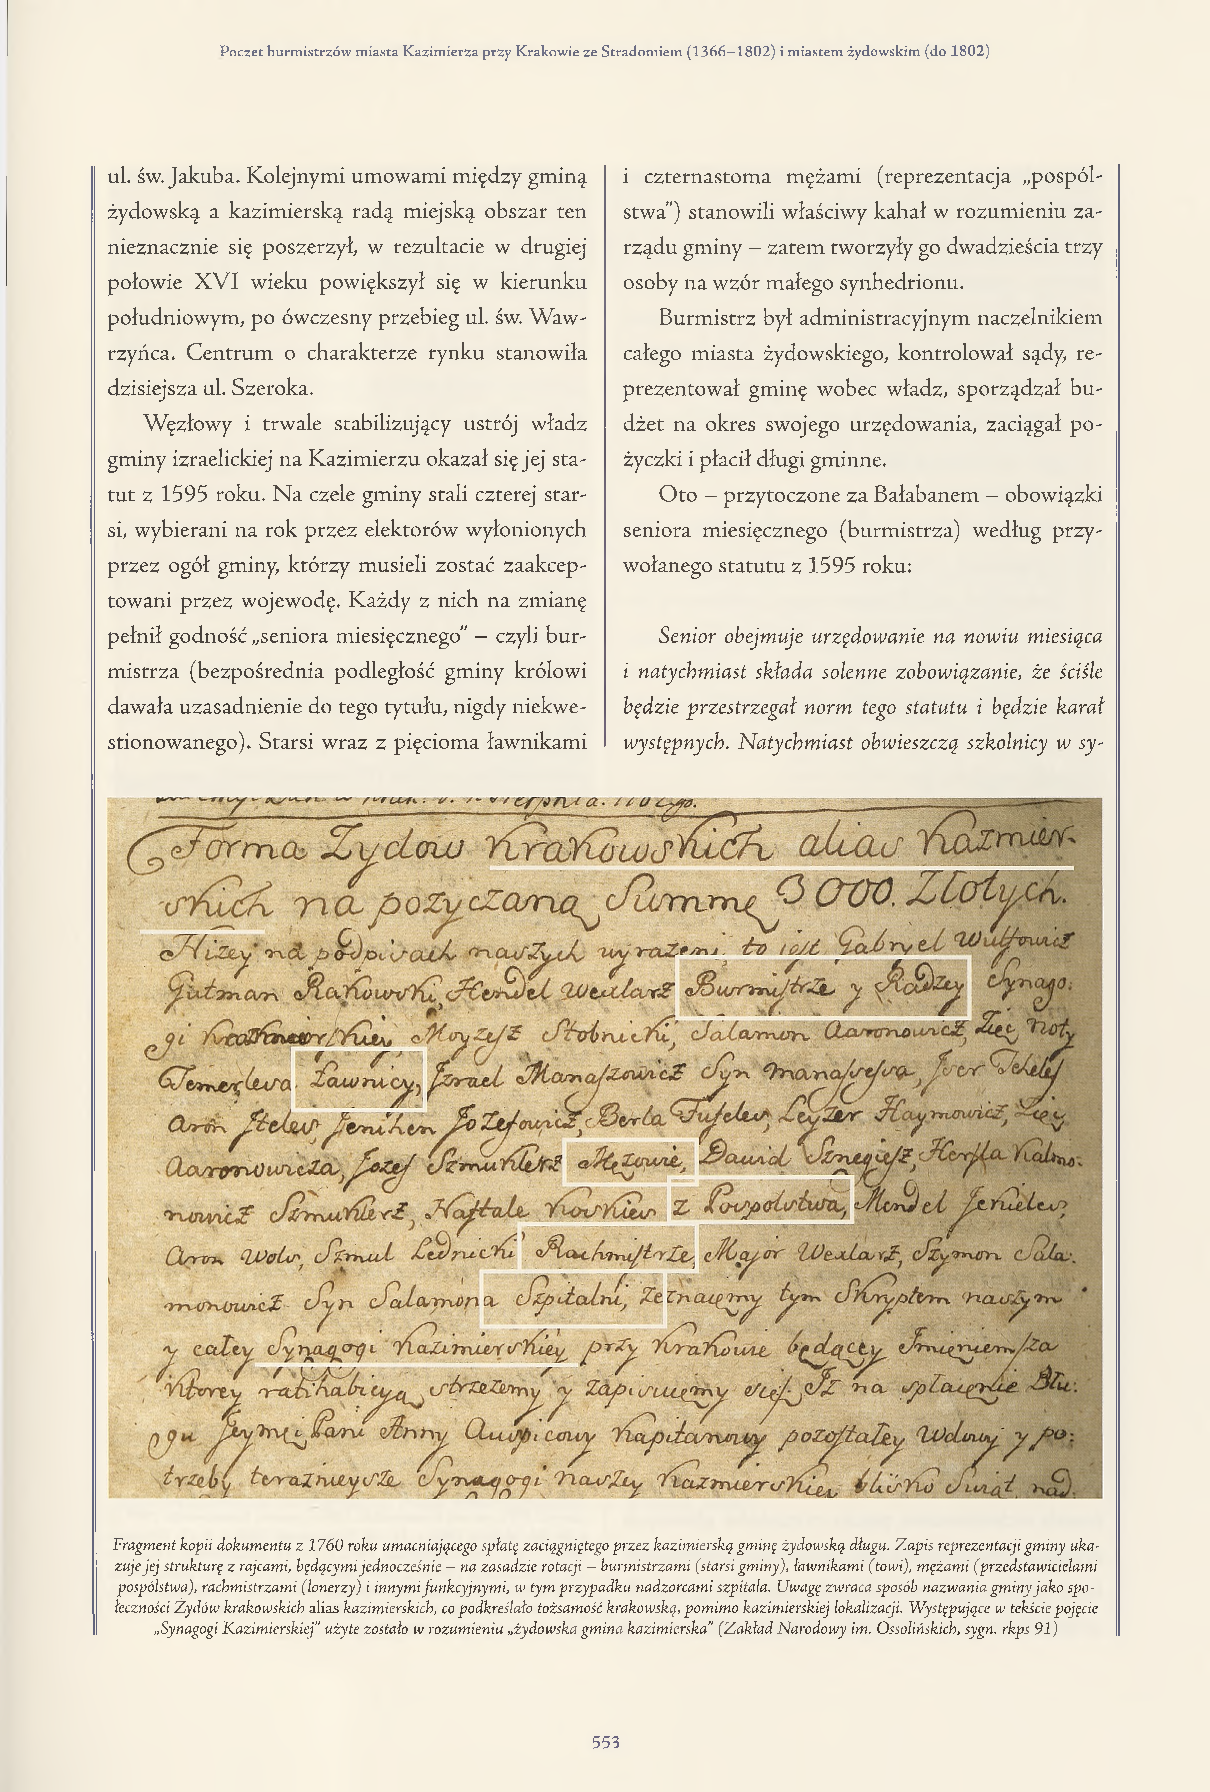 Poczet burmistrzów miasta Kazimierza przy Krakowie ze Stradomiem (1366–1802) i miastem żydowskim (do 1802)
ul. św. Jakuba. Kolejnymi umowami między gminą
żydowską a kazimierską radą miejską obszar ten
nieznacznie się poszerzył, w rezultacie w drugiej
połowie XVI wieku powiększył się w kierunku
południowym, po ówczesny przebieg ul. św. Waw-
rzyńca. Centrum o charakterze rynku stanowiła
dzisiejsza ul. Szeroka.
Węzłowy i trwale stabilizujący ustrój władz
gminy izraelickiej na Kazimierzu okazał się jej sta-
tut z 1595 roku. Na czele gminy stali czterej star-
si, wybierani na rok przez elektorów wyłonionych
przez ogół gminy, którzy musieli zostać zaakcep-
towani przez wojewodę. Każdy z nich na zmianę
pełnił godność „seniora miesięcznego" – czyli bur-
mistrza (bezpośrednia podległość gminy królowi
dawała uzasadnienie do tego tytułu, nigdy niekwe-
stionowanego). Starsi wraz z pięcioma ławnikami
i czternastoma mężami (reprezentacja „pospól-
stwa") stanowili właściwy kahał w rozumieniu za-
rządu gminy – zatem tworzyły go dwadzieścia trzy
osoby na wzór małego synhedrionu.
Burmistrz był administracyjnym naczelnikiem
całego miasta żydowskiego, kontrolował sądy, re-
prezentował gminę wobec władz, sporządzał bu-
dżet na okres swojego urzędowania, zaciągał po-
życzki i płacił długi gminne.
Oto – przytoczone za Bałabanem – obowiązki
seniora miesięcznego (burmistrza) według przy-
wołanego statutu z 1595 roku:
Senior obejmuje urzędowanie na nowiu miesiąca
i natychmiast składa solenne zobowiązanie, że ściśle
będzie przestrzegał norm tego statutu i będzie karał
występnych. Natychmiast obwieszczą szkolnicy w sy-
Forma Zydow Krakowskich alias Kazmier-
skich na pożyczaną Summę 3000. Złotych.
Niżey na podpisach naszych wyrażeni, to jest Gabryel Wulfowicz
Gutman Rakowski, Hendel Wexlarz Burmistrze y Radzey Synago:
gi Moyzesz Stobnicki, Salamon Aaronowicz, Zięć Noty
Temerlesa Ławnicy, Jzrael Manaszowicz Syn Manassesa,
Aron Jzefowicz, Berla Leyzer Haymowicz, Zięć
Aaronowicza, Jozef Szmuklerz Mężowie, Dawid Hersla Kalmo:
nowicz Szmuklerz, Naftale z Pospolstwa, Mendel
Aron Wols, Szmul Lednicki Rachmistrze, Major Wexlarz, Szymon Sala:
monowicz Syn Salamona Szpitalni, Zeznaięmy tym Skryptem naszym
y całey Synagogi Kazimierskiey przy Krakowie będącey Jmięniem, za
ktorey ratihabicyą strzeżemy y zapisuięmy się, Jż na spłacęnie Dłu:
gu Jeymći Pani Anny Kapitanowy pozostałey Wdowy y po:
trzeby teraznieysze Synagogi naszey Kazmierskiey blisko Swiąt nad
Fragment kopii dokumentu z 1760 roku umacniającego spłatę zaciągniętego przez kazimierską gminę żydowską długu. Zapis reprezentacji gminy uka-
zuje jej strukturę z rajcami, będącymi jednocześnie – na zasadzie rotacji – burmistrzami (starsi gminy), ławnikami (towi), mężami (przedstawicielami
pospólstwa), rachmistrzami (lonerzy) i innymi funkcyjnymi, w tym przypadku nadzorcami szpitala. Uwagę zwraca sposób nazwania gminy jako spo-
łeczności Żydów krakowskich alias kazimierskich, co podkreślało tożsamość krakowską, pomimo kazimierskiej lokalizacji. Występujące w tekście pojęcie
„Synagogi Kazimierskiej" użyte zostało w rozumieniu „żydowska gmina kazimierska" (Zakład Narodowy im. Ossolińskich, sygn. rkps 91)
553